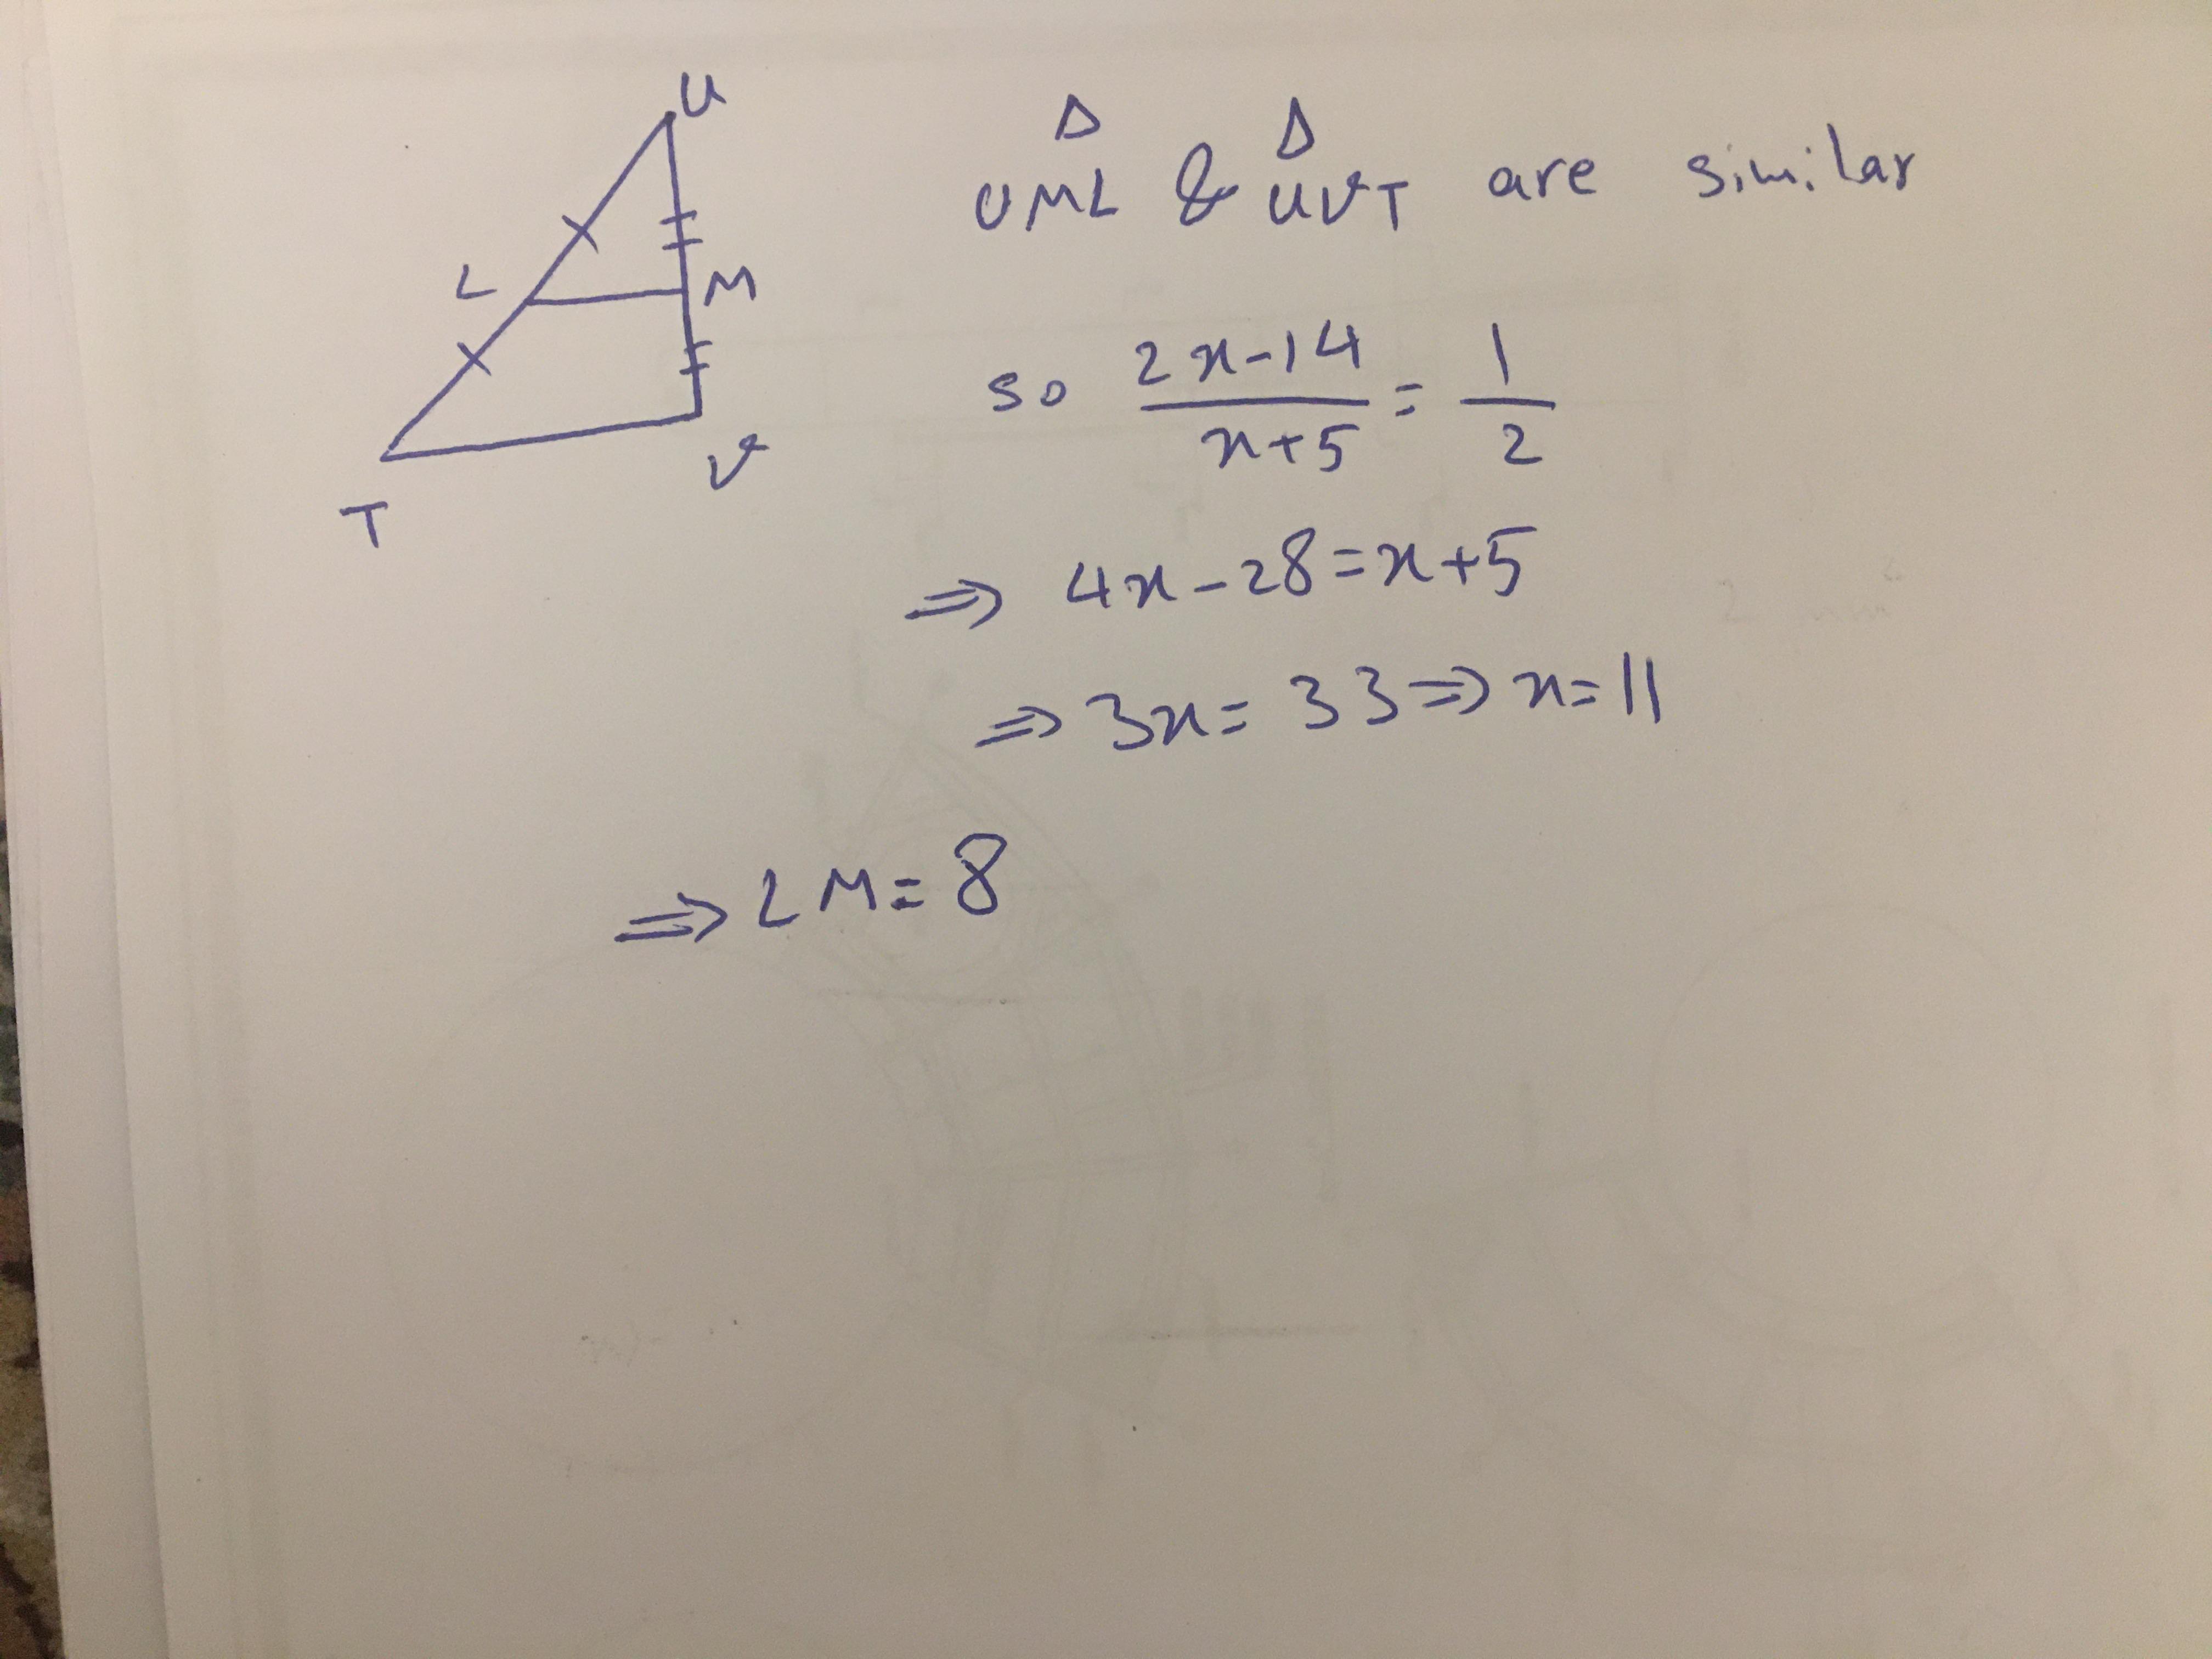 U
L
M
T
V
Δ Δ
UML & UVT are similar
so 2x-14/x+5 = 1/2
⇒ 4x-28=x+5
⇒ 3x=33 ⇒ x=11
⇒ LM=8